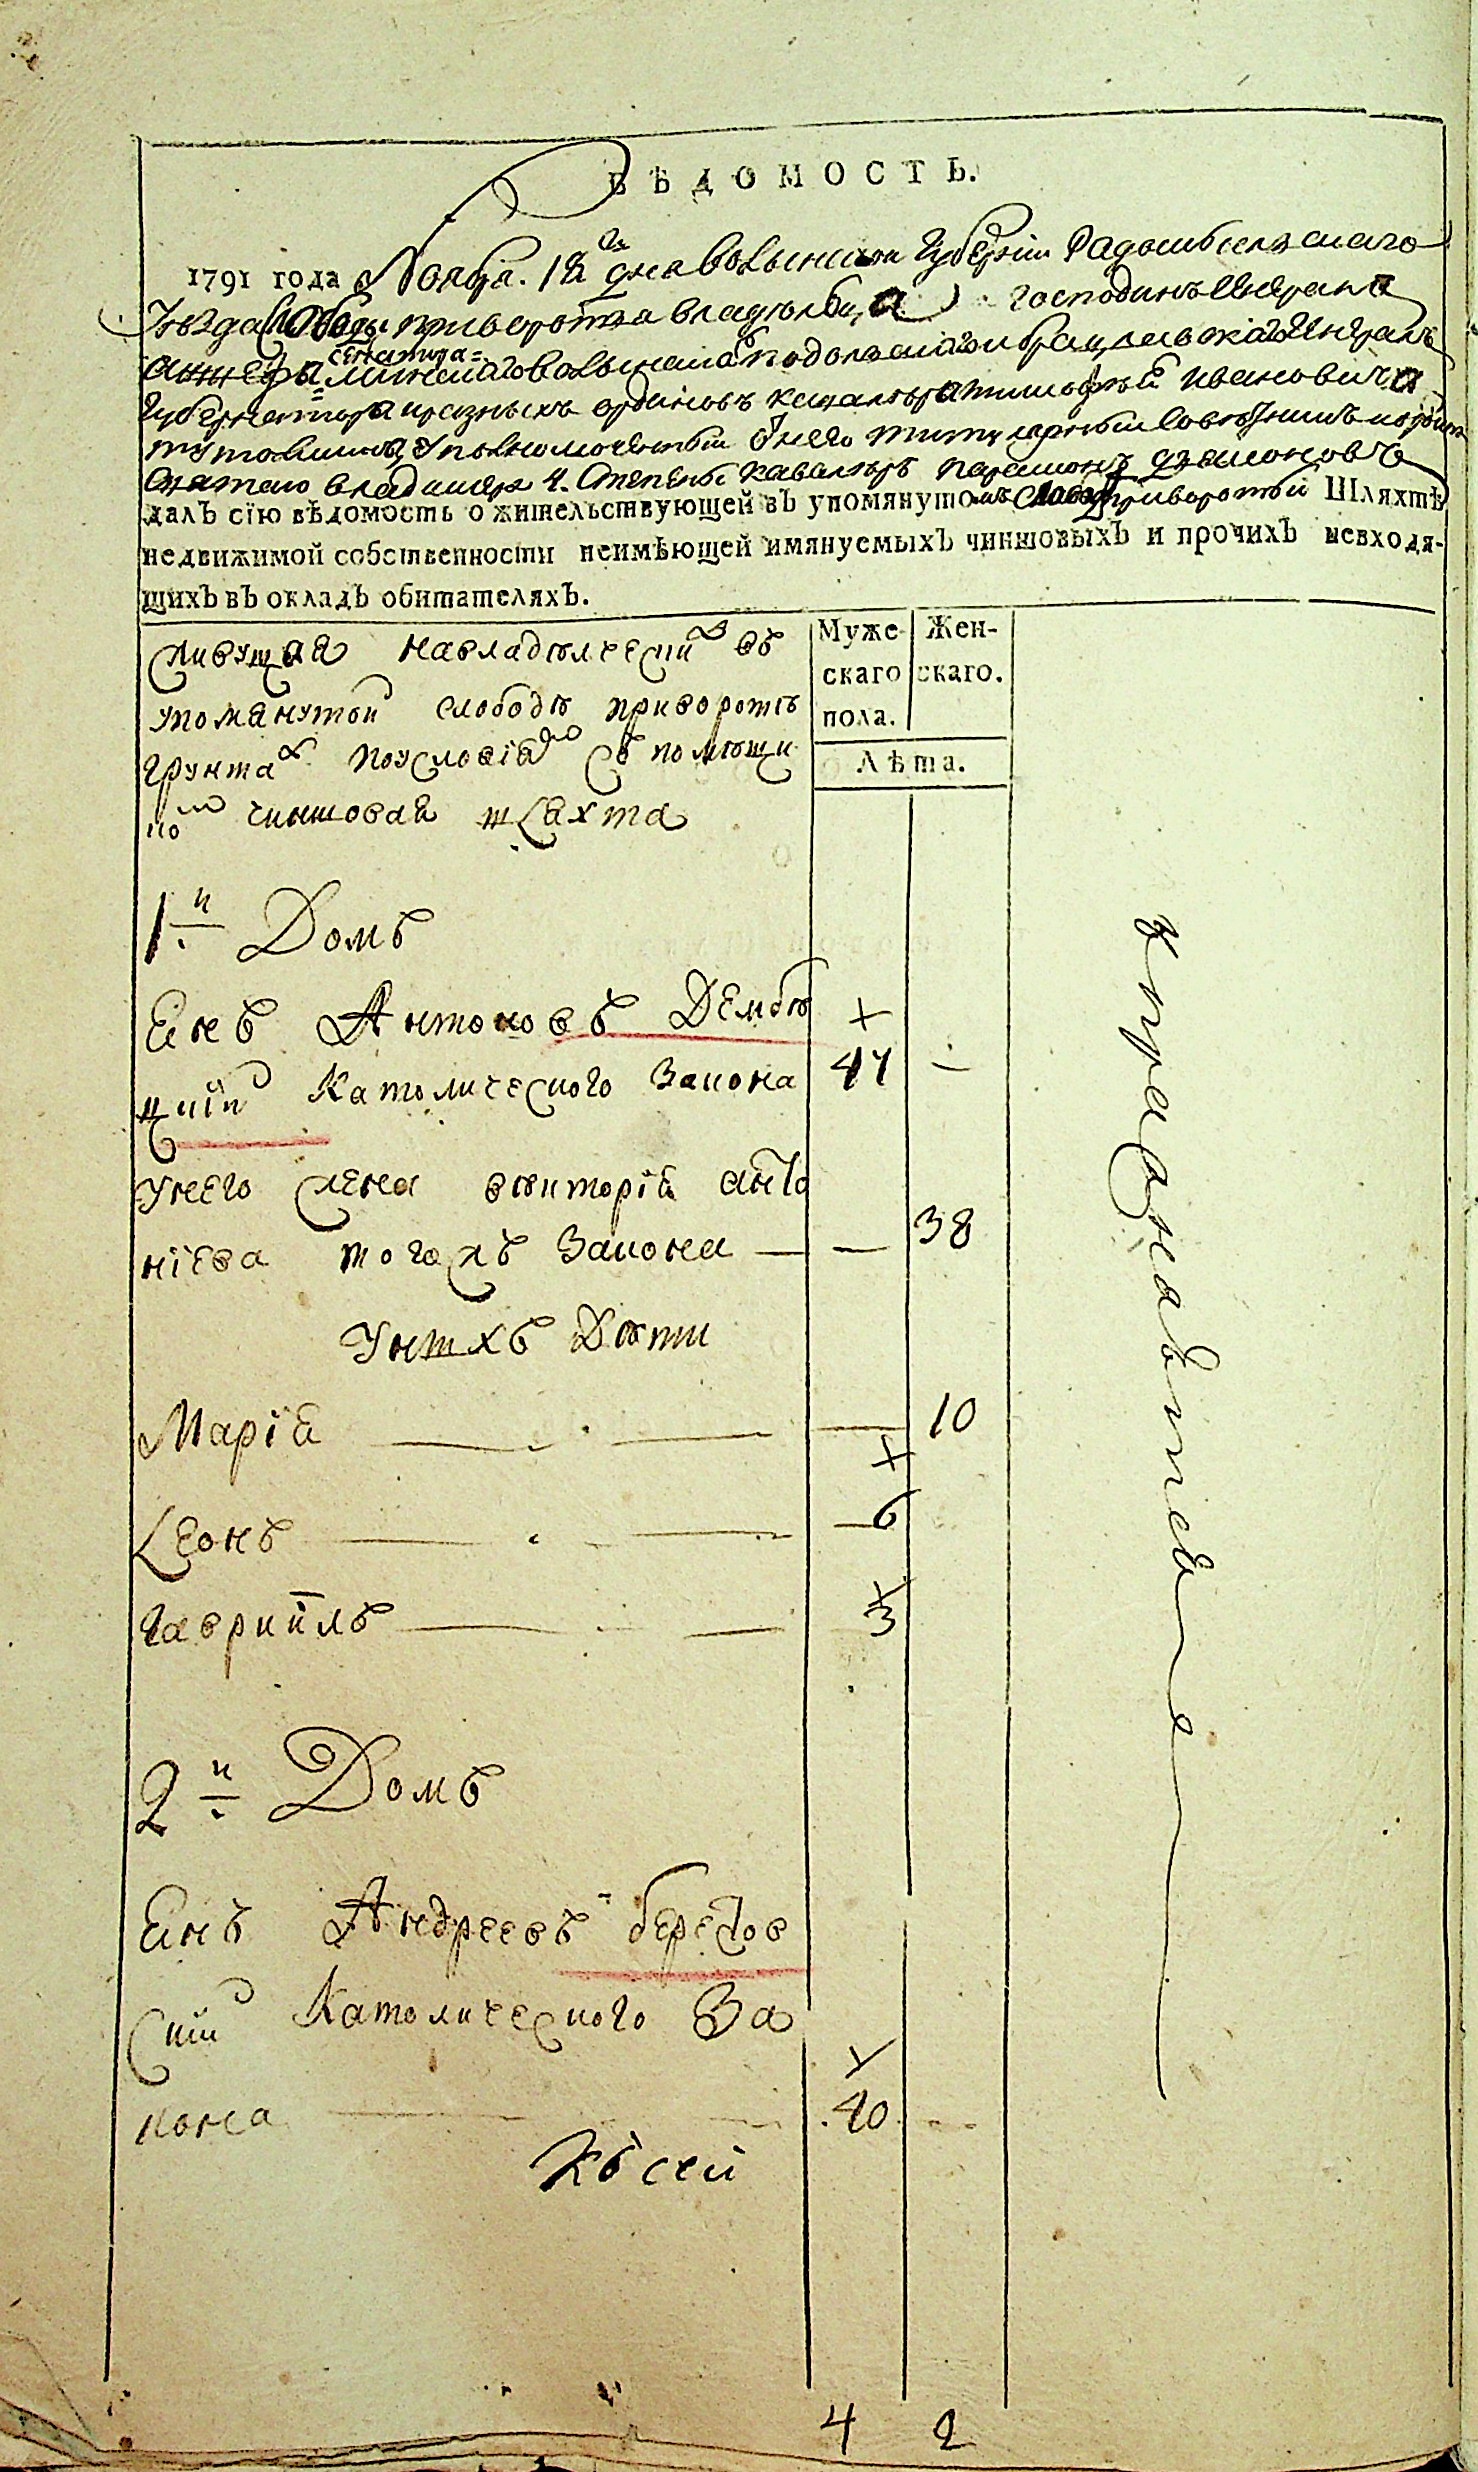 ВѢДОМОСТЬ.
1791 года Ноября. 18 дня волынской Губернии Радомысльскаго
Уѣзда Слободы приворотья владѣльца господинъ Генерала
аншефа Сенатора
минскаго волынскаго подольскаго и брацлавскаго Генералъ
Губернатора и разныхъ ординовъ кавалера тимофѣй ивановича
тутолмина, Уполномоченный От него титулярный Советникъ и ордина
Святаго владимера 4. Степени кавалеръ парамонъ
далЪ сїю вѣдомость о жительствующей вЪ упомянутомъ Слободе приворотьи Шляхтѣ
недвижимой собственности неимѣющей имянуемыхЪ чиншовыхЪ и прочихЪ невходя-
щихЪ вЪ окладЪ обитателяхЪ.
Муже- Жен-
скаго скаго.
пола.
Лѣта.
живущая навладѣлческих въ
упомянутои слободѣ приворотѣ
грунтах поусловїям съ помѣщи
ком чиншовая шляхта
1й Домъ
Янъ Антоновъ Дембѣ
цкїй Католического Закона 47 -
Унего жена викторїя анто
нїева тогожъ Закона — — 38
Унихъ Дѣти
Марїя — — 10
Леонъ — — 6
Гавриилъ — — 3
2й Домъ
Янъ Андреевъ берестов
скїй Католического За
кона 40 -
Къ сей
4 2